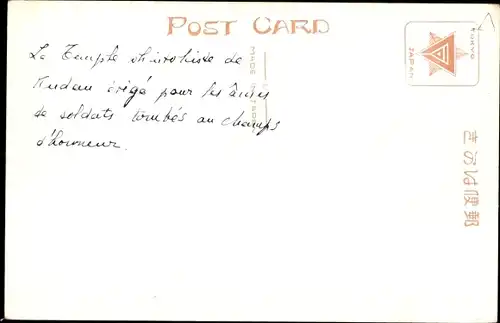 POST CARD
TOKYO
JAPAN
MADE IN JAPAN
Le Temple shintoïste de
Kudan érigé pour les âmes
de soldats tombés au champs
d'honneur.
きがは便郵